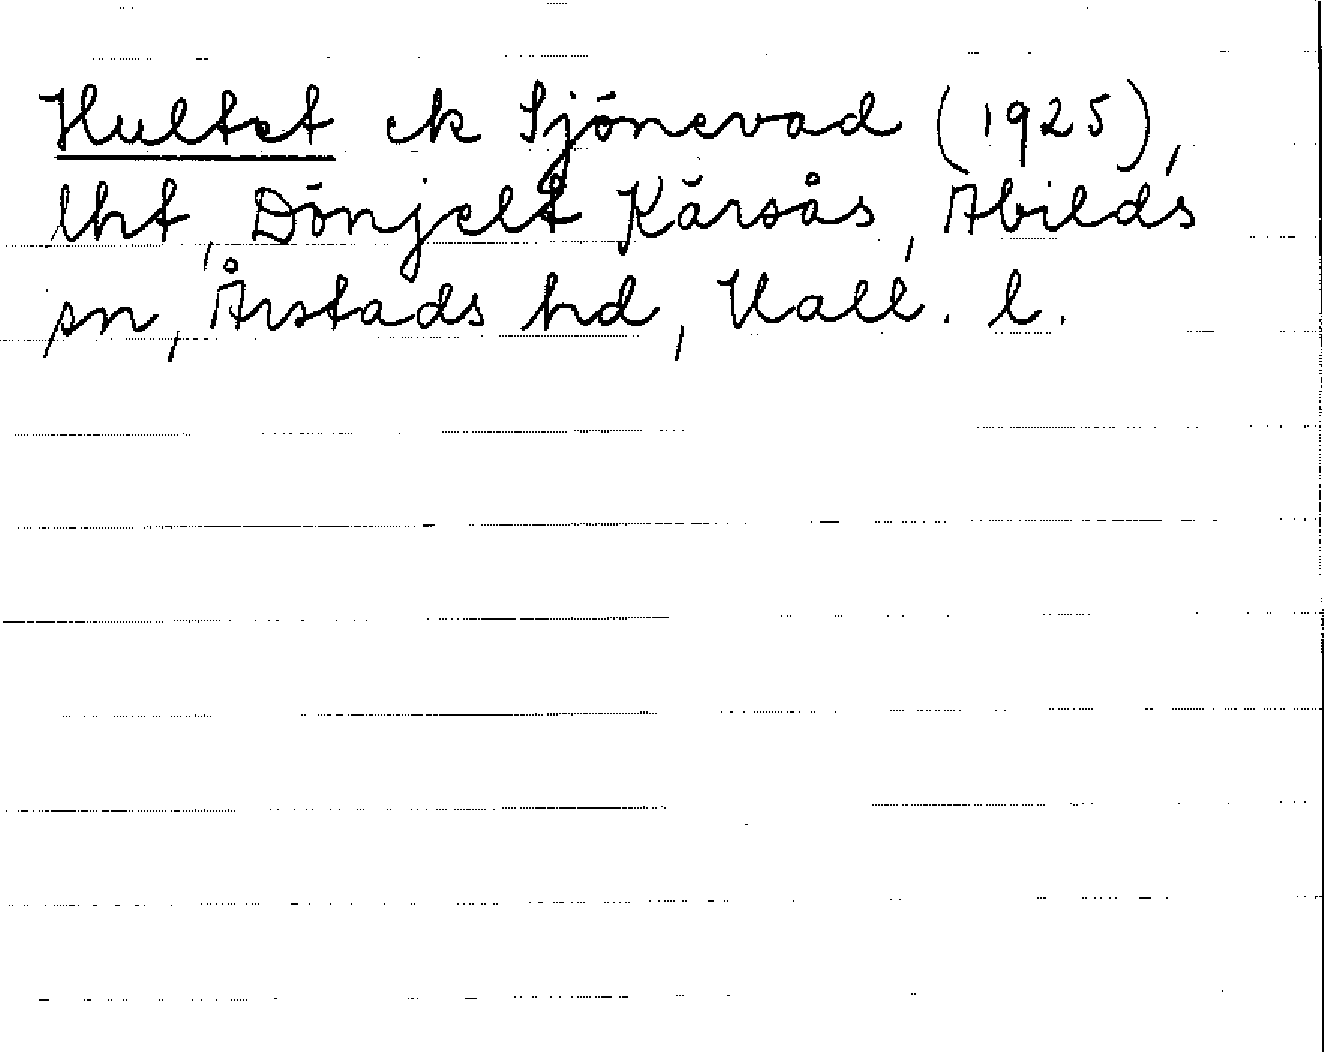 Hultet ek Sjönevad (1925),
lht, Dönjelt Kärsås, Abilds
sn, Årstads hd, Hall. l.